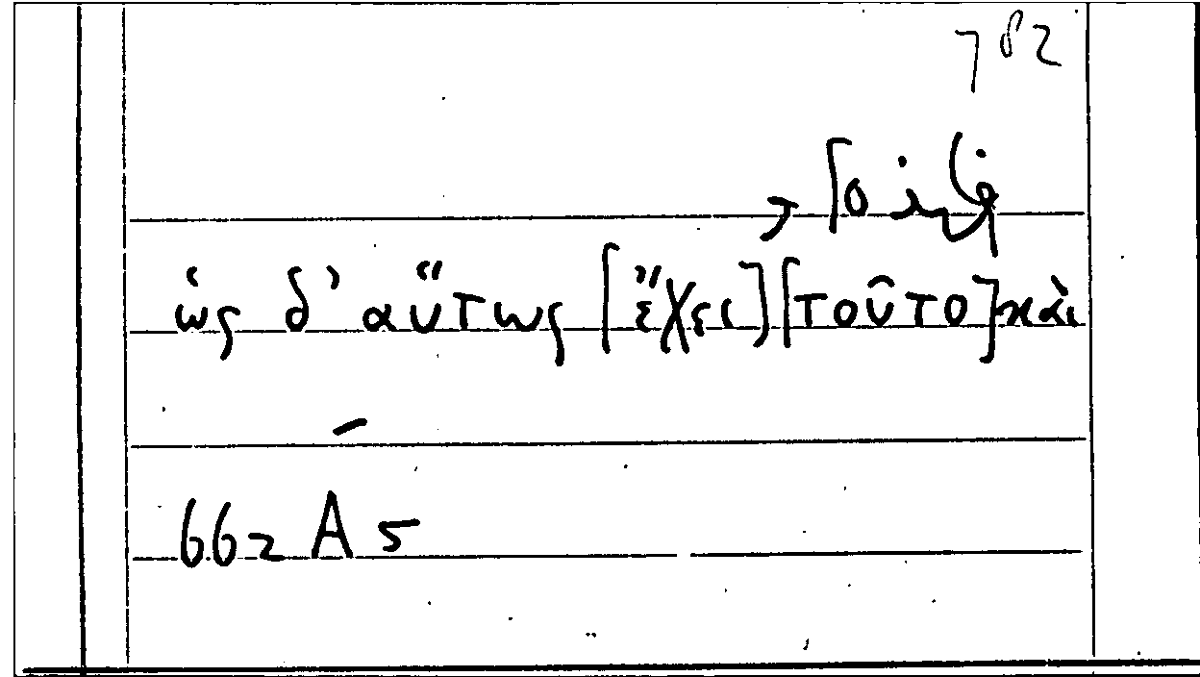 782
ὡς δ' αὔτως [ἔχει] [τοῦτο] καὶ
662 A 5